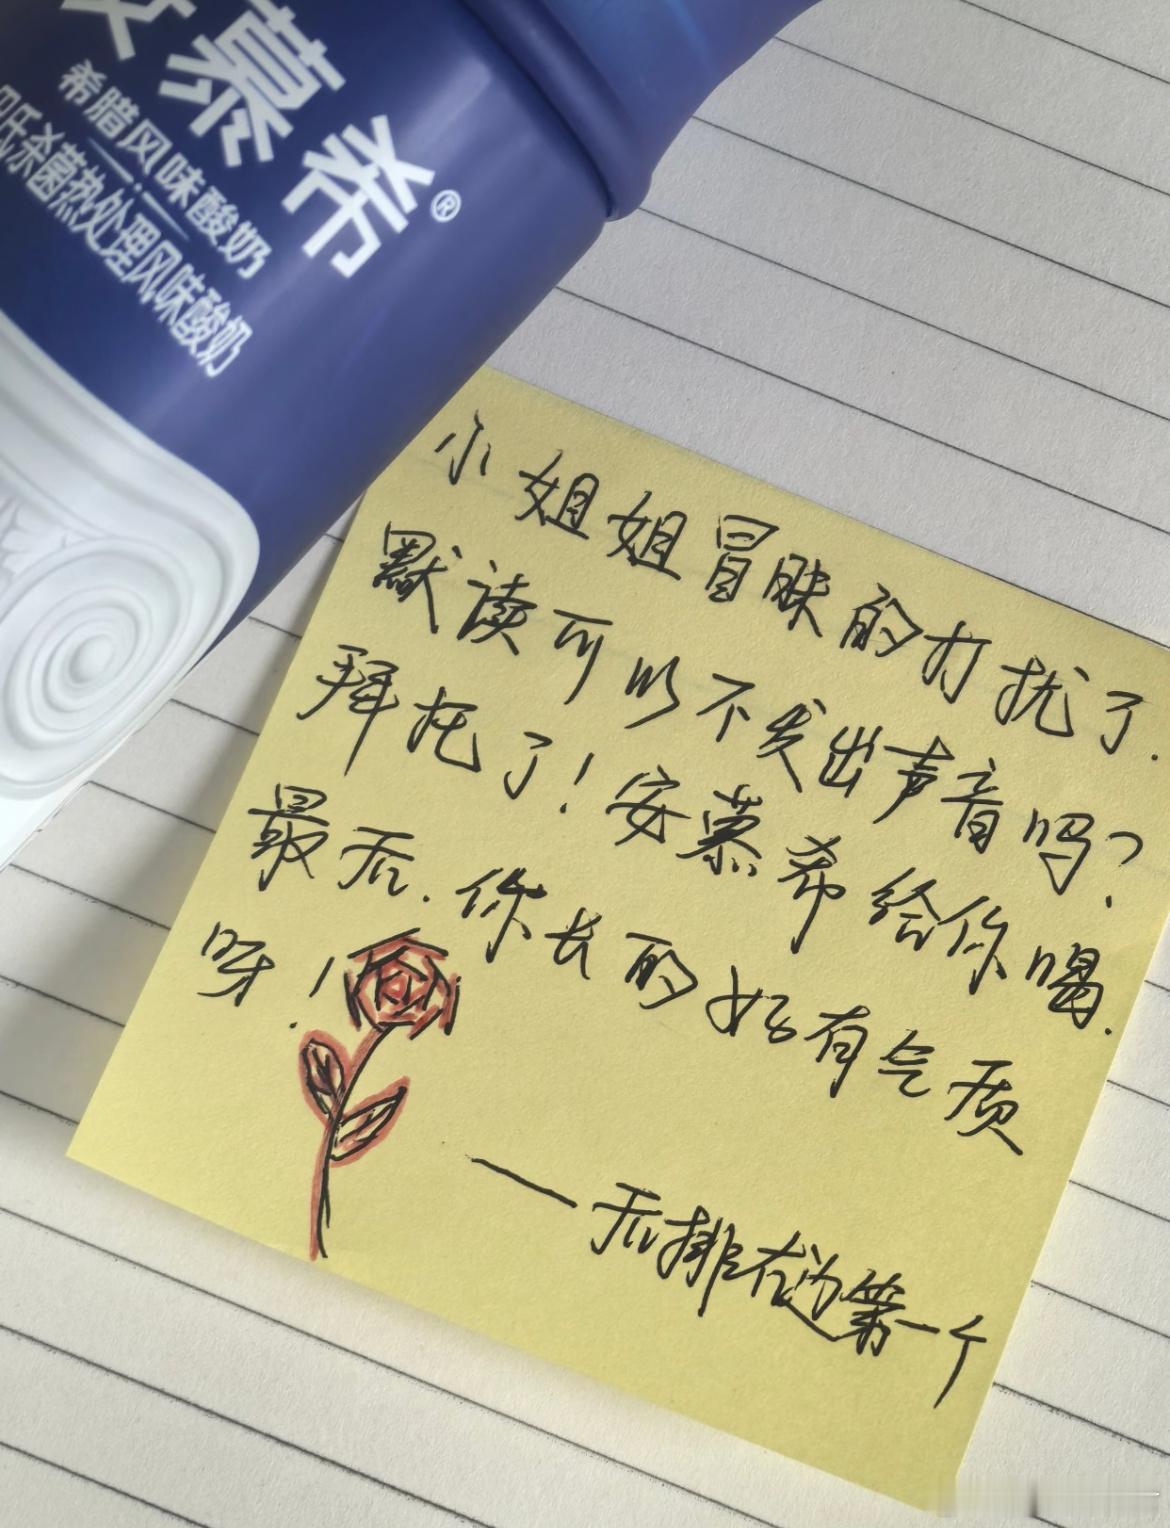 安慕希®
希腊风味酸奶
巴氏杀菌热处理风味酸奶
小姐姐冒昧的打扰了.
默读可以不发出声音吗?
拜托了!安慕希给你喝.
最后.你长的好有气质
呀!
——后排右边第一个